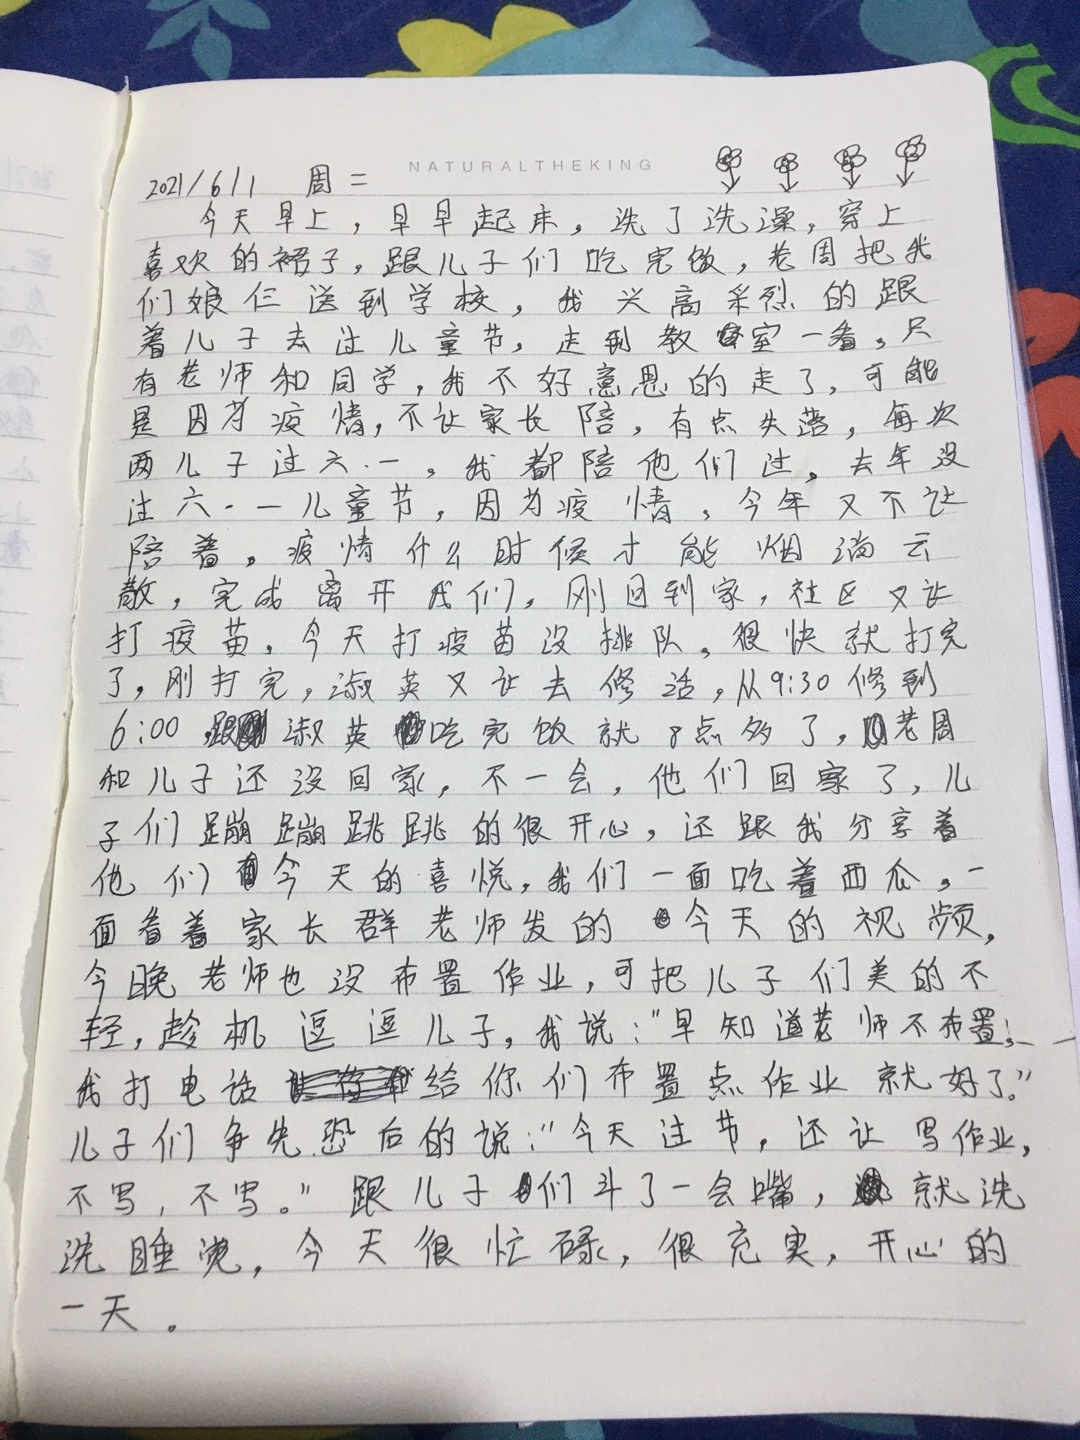 NATURALTHEKING
2021/6/1 周二
今天早上，早早起床，洗了洗澡，穿上
喜欢的裙子，跟儿子们吃完饭，老周把我
们娘仨送到学校，我兴高采烈的跟
着儿子去过儿童节，走到教室一看，只
有老师和同学，我不好意思的走了，可能
是因为疫情，不让家长陪，有点失落，每次
两儿子过六·一，我都陪他们过，去年没
过六·一儿童节，因为疫情，今年又不让
陪着，疫情什么时候才能烟消云
散，完成离开我们，刚回到家，社区又让
打疫苗，今天打疫苗没排队，很快就打完
了，刚打完，淑英又让去修活，从9:30修到
6:00 淑英吃完饭就8点多了，老周
和儿子还没回家，不一会，他们回家了，儿
子们蹦蹦跳跳的很开心，还跟我分享着
他们今天的喜悦，我们一面吃着西瓜，一
面看着家长群老师发的今天的视频，
今晚老师也没布置作业，可把儿子们美的不
轻，趁机逗逗儿子，我说："早知道老师不布置，
我打电话给你们布置点作业就好了。"
儿子们争先恐后的说："今天过节，还让写作业，
不写，不写。"跟儿子们斗了一会嘴，就洗
洗睡觉，今天很忙碌，很充实，开心的
一天。